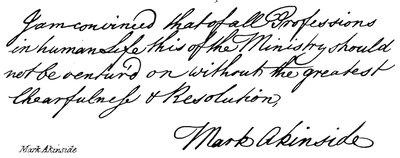 I am convinced that of all Professions
in human Life this of the Ministry should
not be ventur'd on without the greatest
Chearfulness & Resolution,
Mark Akinside
Mark Akinside